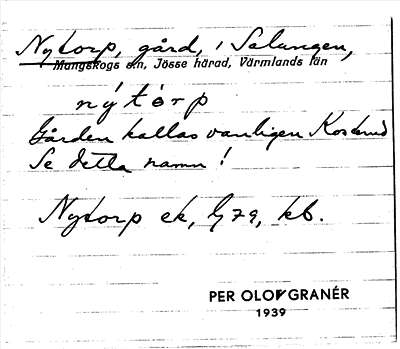 Nytorp, gård, i Salungen,
Mangskogs sn, Jösse härad, Värmlands län
nýtòrp
Gården kallas vanligen Kosterud
Se detta namn!
Nytorp ek, G79, kb.
PER OLOF GRANÉR
1939